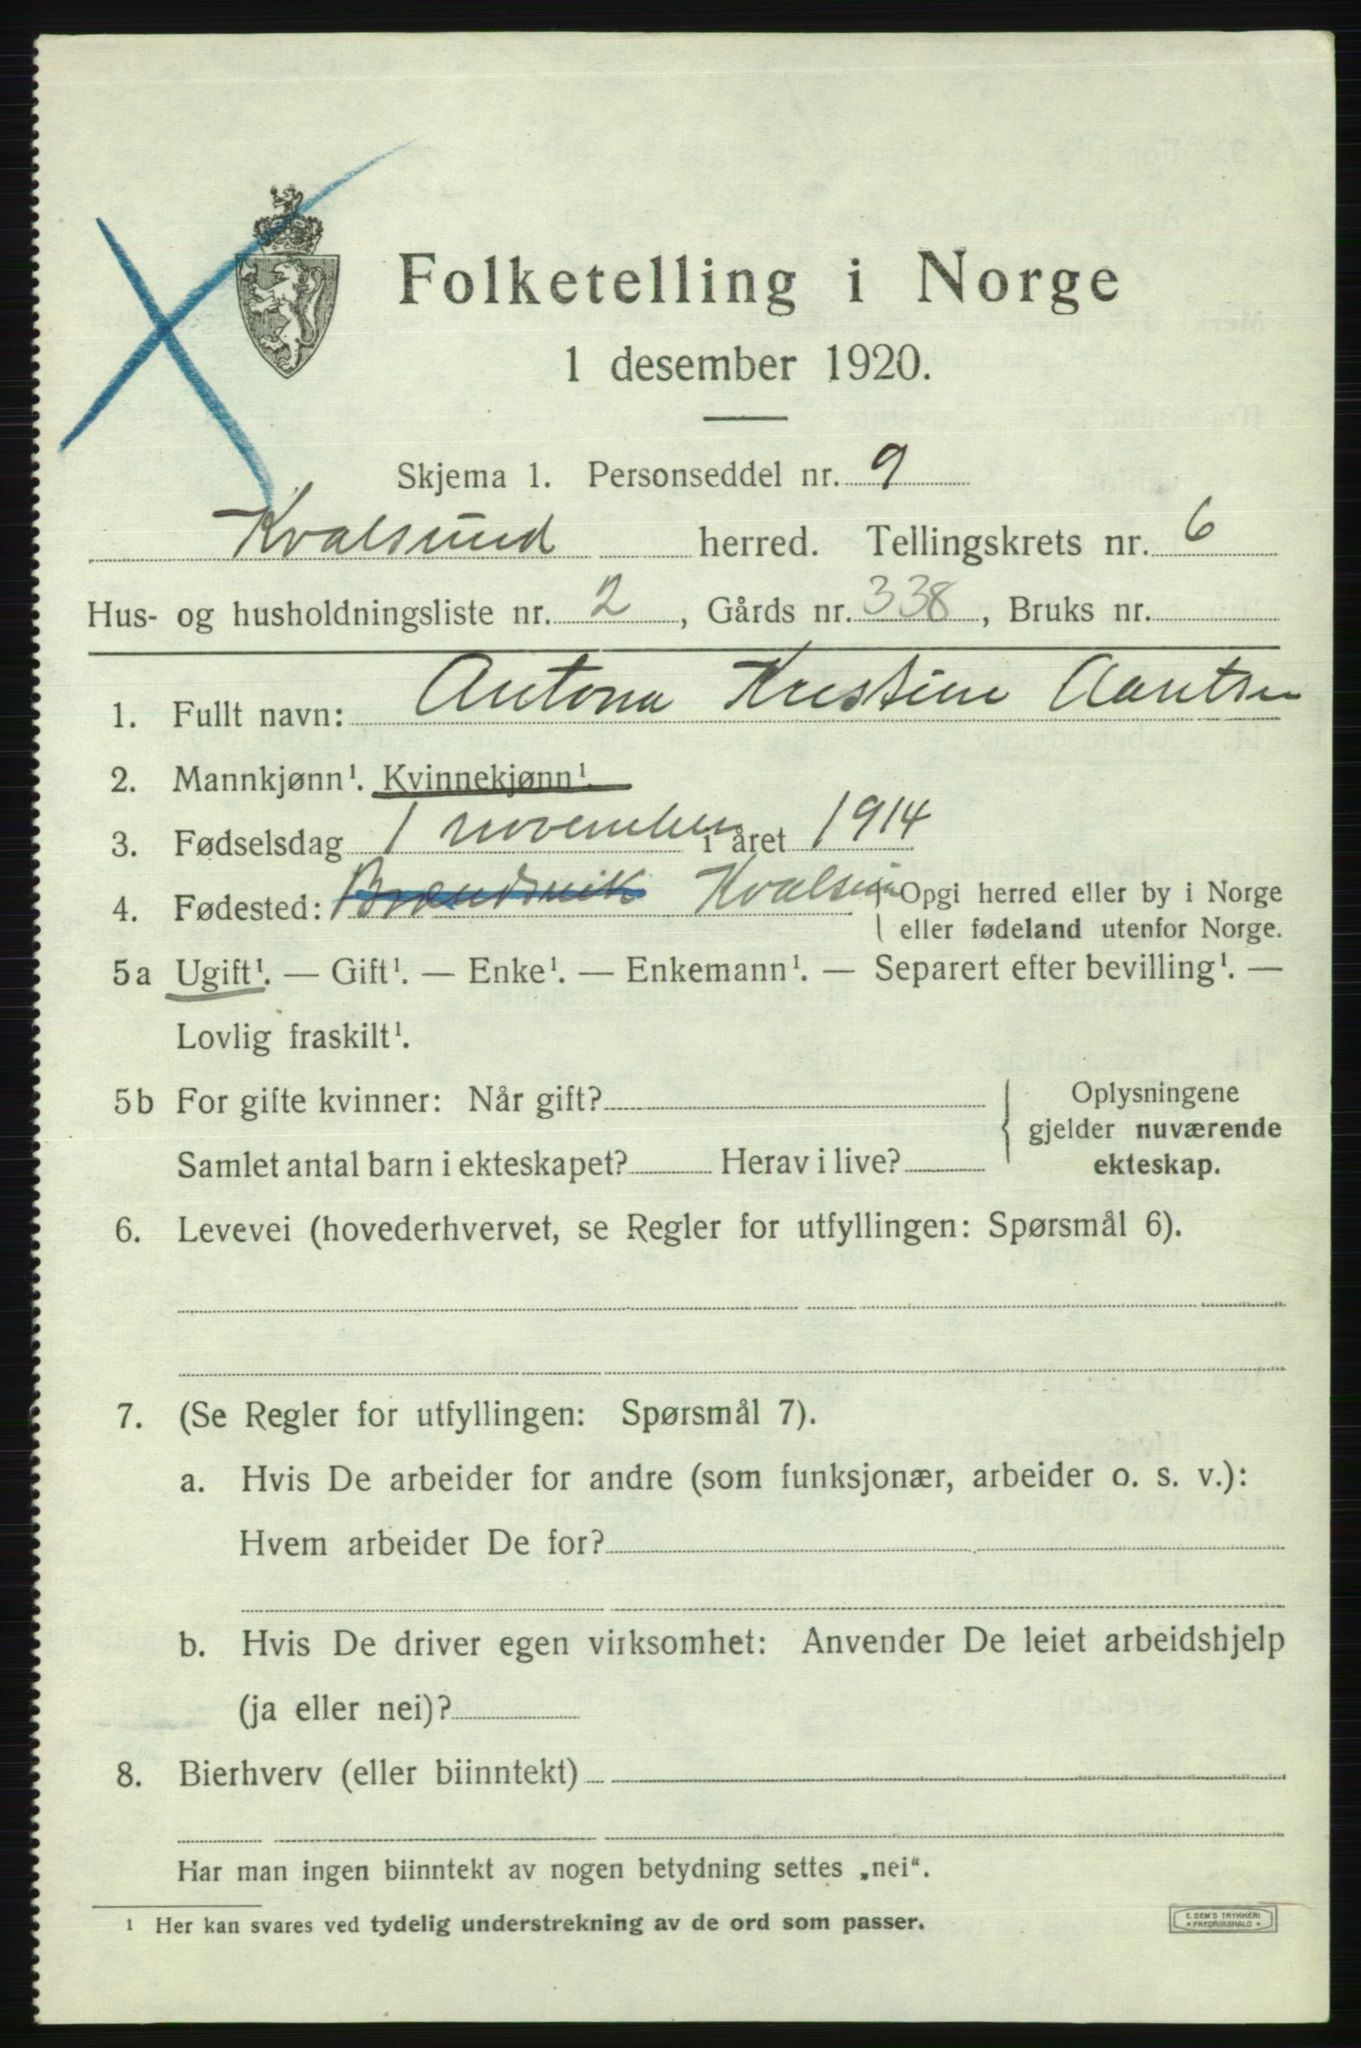 Folketelling i Norge
1 desember 1920.
Skjema 1. Personseddel nr. 9
Kvalsund herred. Tellingskrets nr. 6
Hus- og husholdningsliste nr. 2, Gårds nr. 338, Bruks nr.
1. Fullt navn: Antona Kristine
2. Mannkjønn¹. Kvinnekjønn¹.
3. Fødselsdag 1 november i året 1914
4. Fødested: Brændsvik Kvalsund Opgi herred eller by i Norge
eller fødeland utenfor Norge.
5a Ugift¹. — Gift¹. — Enke¹. — Enkemann¹. — Separert efter bevilling¹. —
Lovlig fraskilt¹.
5b For gifte kvinner: Når gift? Oplysningene
gjelder nuværende
Samlet antal barn i ekteskapet? Herav i live? ekteskap.
6. Levevei (hovederhvervet, se Regler for utfyllingen: Spørsmål 6).
7. (Se Regler for utfyllingen: Spørsmål 7).
a. Hvis De arbeider for andre (som funksjonær, arbeider o. s. v.):
Hvem arbeider De for?
b. Hvis De driver egen virksomhet: Anvender De leiet arbeidshjelp
(ja eller nei)?
8. Bierhverv (eller biinntekt)
Har man ingen biinntekt av nogen betydning settes „nei“.
¹ Her kan svares ved tydelig understrekning av de ord som passer.
E. SEM'S TRYKKERI
FREDRIKSHALD